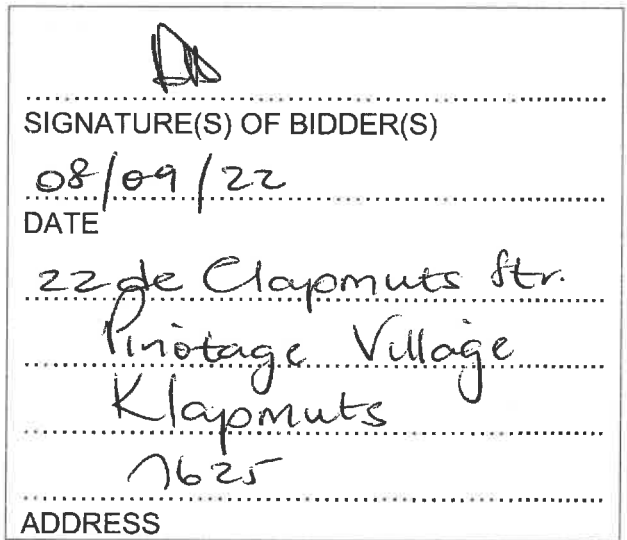 SIGNATURE(S) OF BIDDER(S)
08/09/22
DATE
22 de Clapmuts Str.
Pinotage Village
Klapmuts
7625
ADDRESS